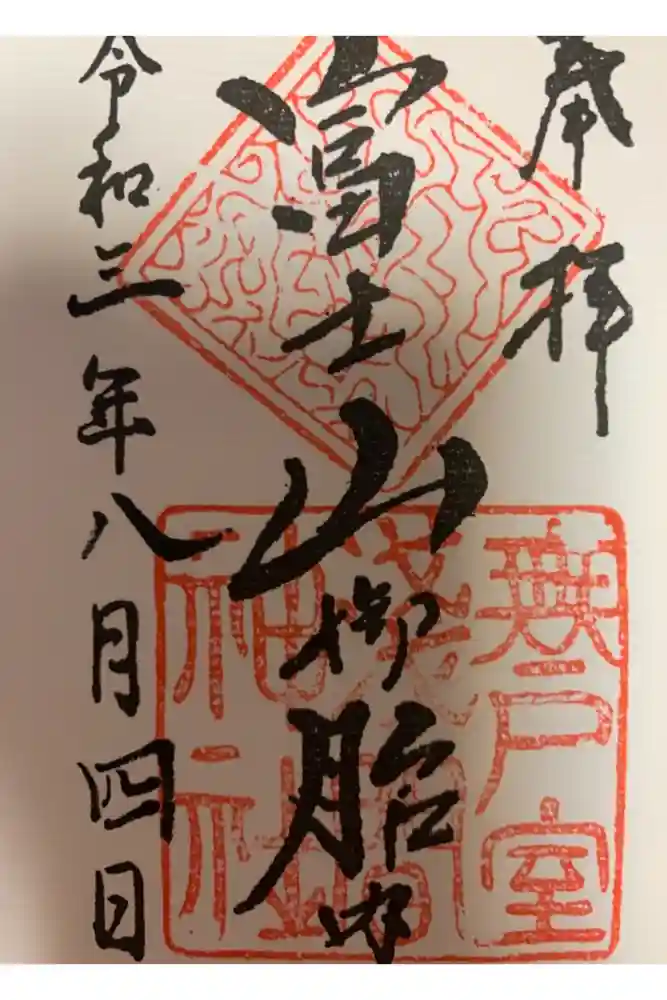 奉拝
富士山御胎内
令和三年八月四日
無戸室
浅間
神社